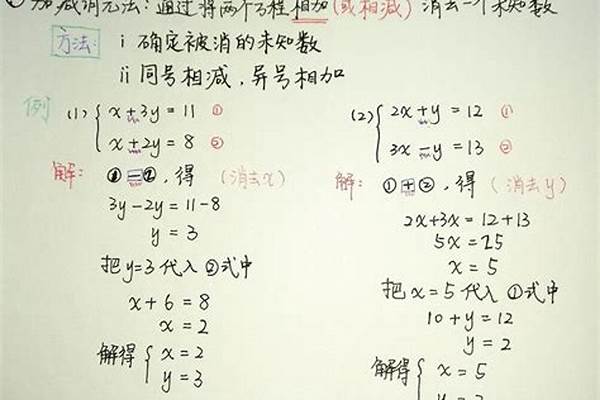 加减消元法：通过将两个方程相加(或相减)消去一个未知数
方法： i 确定被消的未知数
ii 同号相减，异号相加
例 (1) { x+3y=11 ①
x+2y=8 ②
解： ①-②，得 (消去x)
3y-2y=11-8
y=3
把y=3代入②式中
x+6=8
x=2
解得 { x=2
y=3
(2) { 2x+y=12 ①
3x-y=13 ②
解： ①+②，得 (消去y)
2x+3x=12+13
5x=25
x=5
把x=5代入①式中
10+y=12
y=2
解得 { x=5